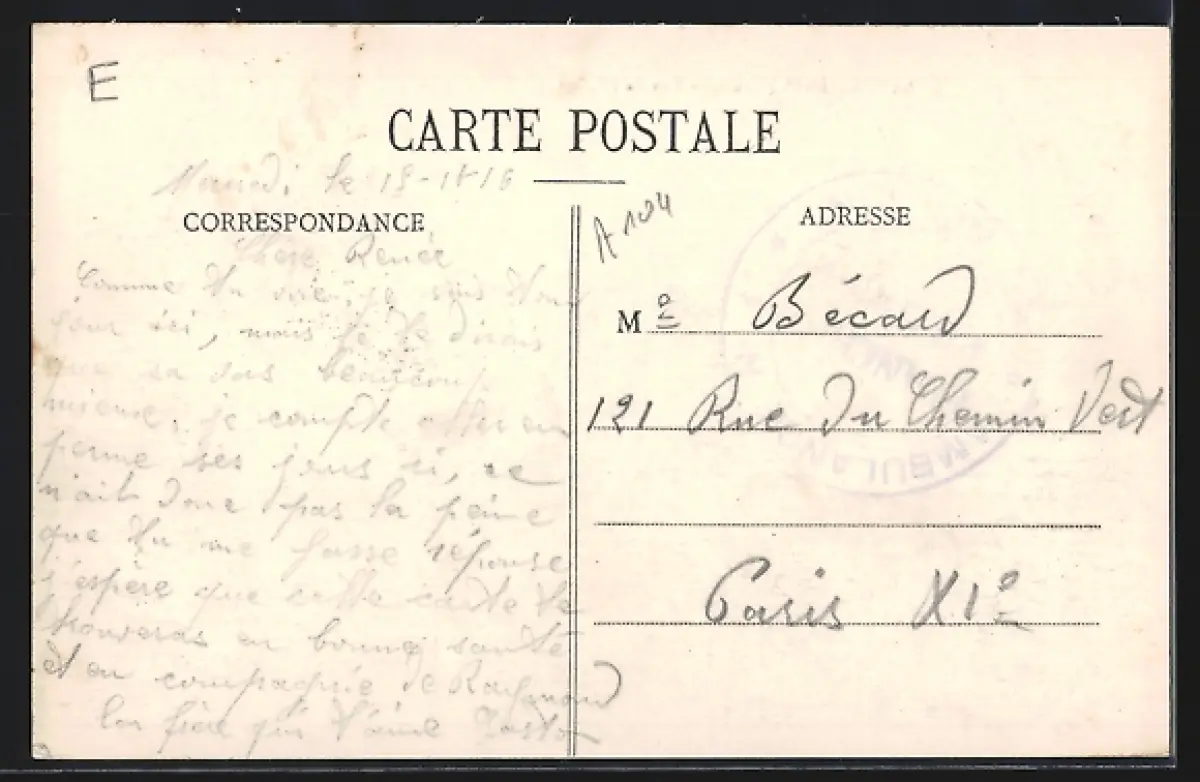 E
CARTE POSTALE
le 15-
CORRESPONDANCE
Chère Renée
Comme tu vois, je suis
ici, mais je te dirais
que sa vas beaucoup
mieux. je compte aller en
perme ses jours si, se
n'ait donc pas la peine
que tu me fasse réponse
J'espère que cette carte te
trouveras en bonne santé
et en compagnie de Raymond
Ton frère qui t'aime
A 104
ADRESSE
Me Bécard
121 Rue Du Chemin Vert
Paris XIe
AMBULAN